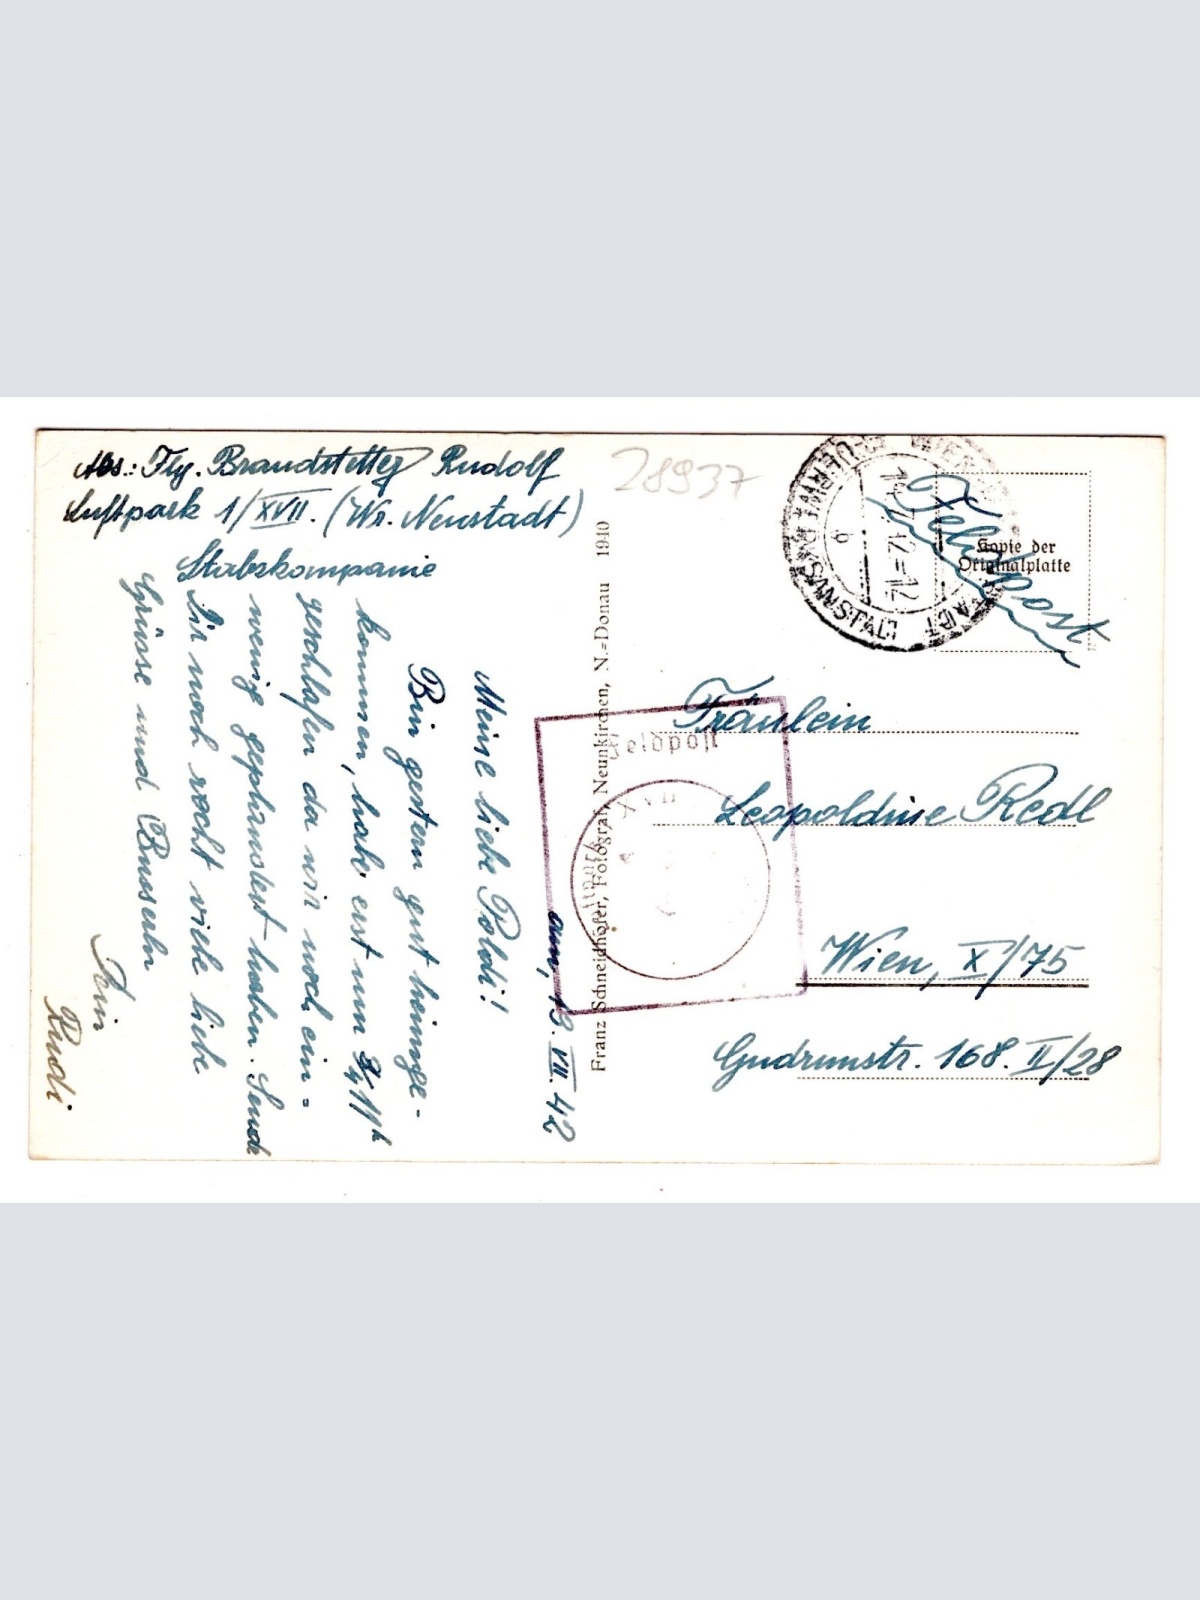 Abs.: Flg. Brandstetter Rudolf
Luftpark 1/XVII. (Wr. Neustadt)
Stabskompanie
am, 13. VII. 42
Meine liebe Poldi!
Bin gestern gut heimge-
kommen, hab' erst um 3/4 11h
geschlafen da wir noch ein=
wenig geplaudert haben. Sende
Dir noch recht viele liebe
Grüsse und Busserln
Dein
Rudi
Franz Schneidhofer, Fotograf, Neunkirchen, N.=Donau 1940
28937
b
Feldpost
Kopie der
Originalplatte
Feldpost
XVII
Fräulein
Leopoldine Redl
Wien, X/75
Gudrunstr. 168. II/28